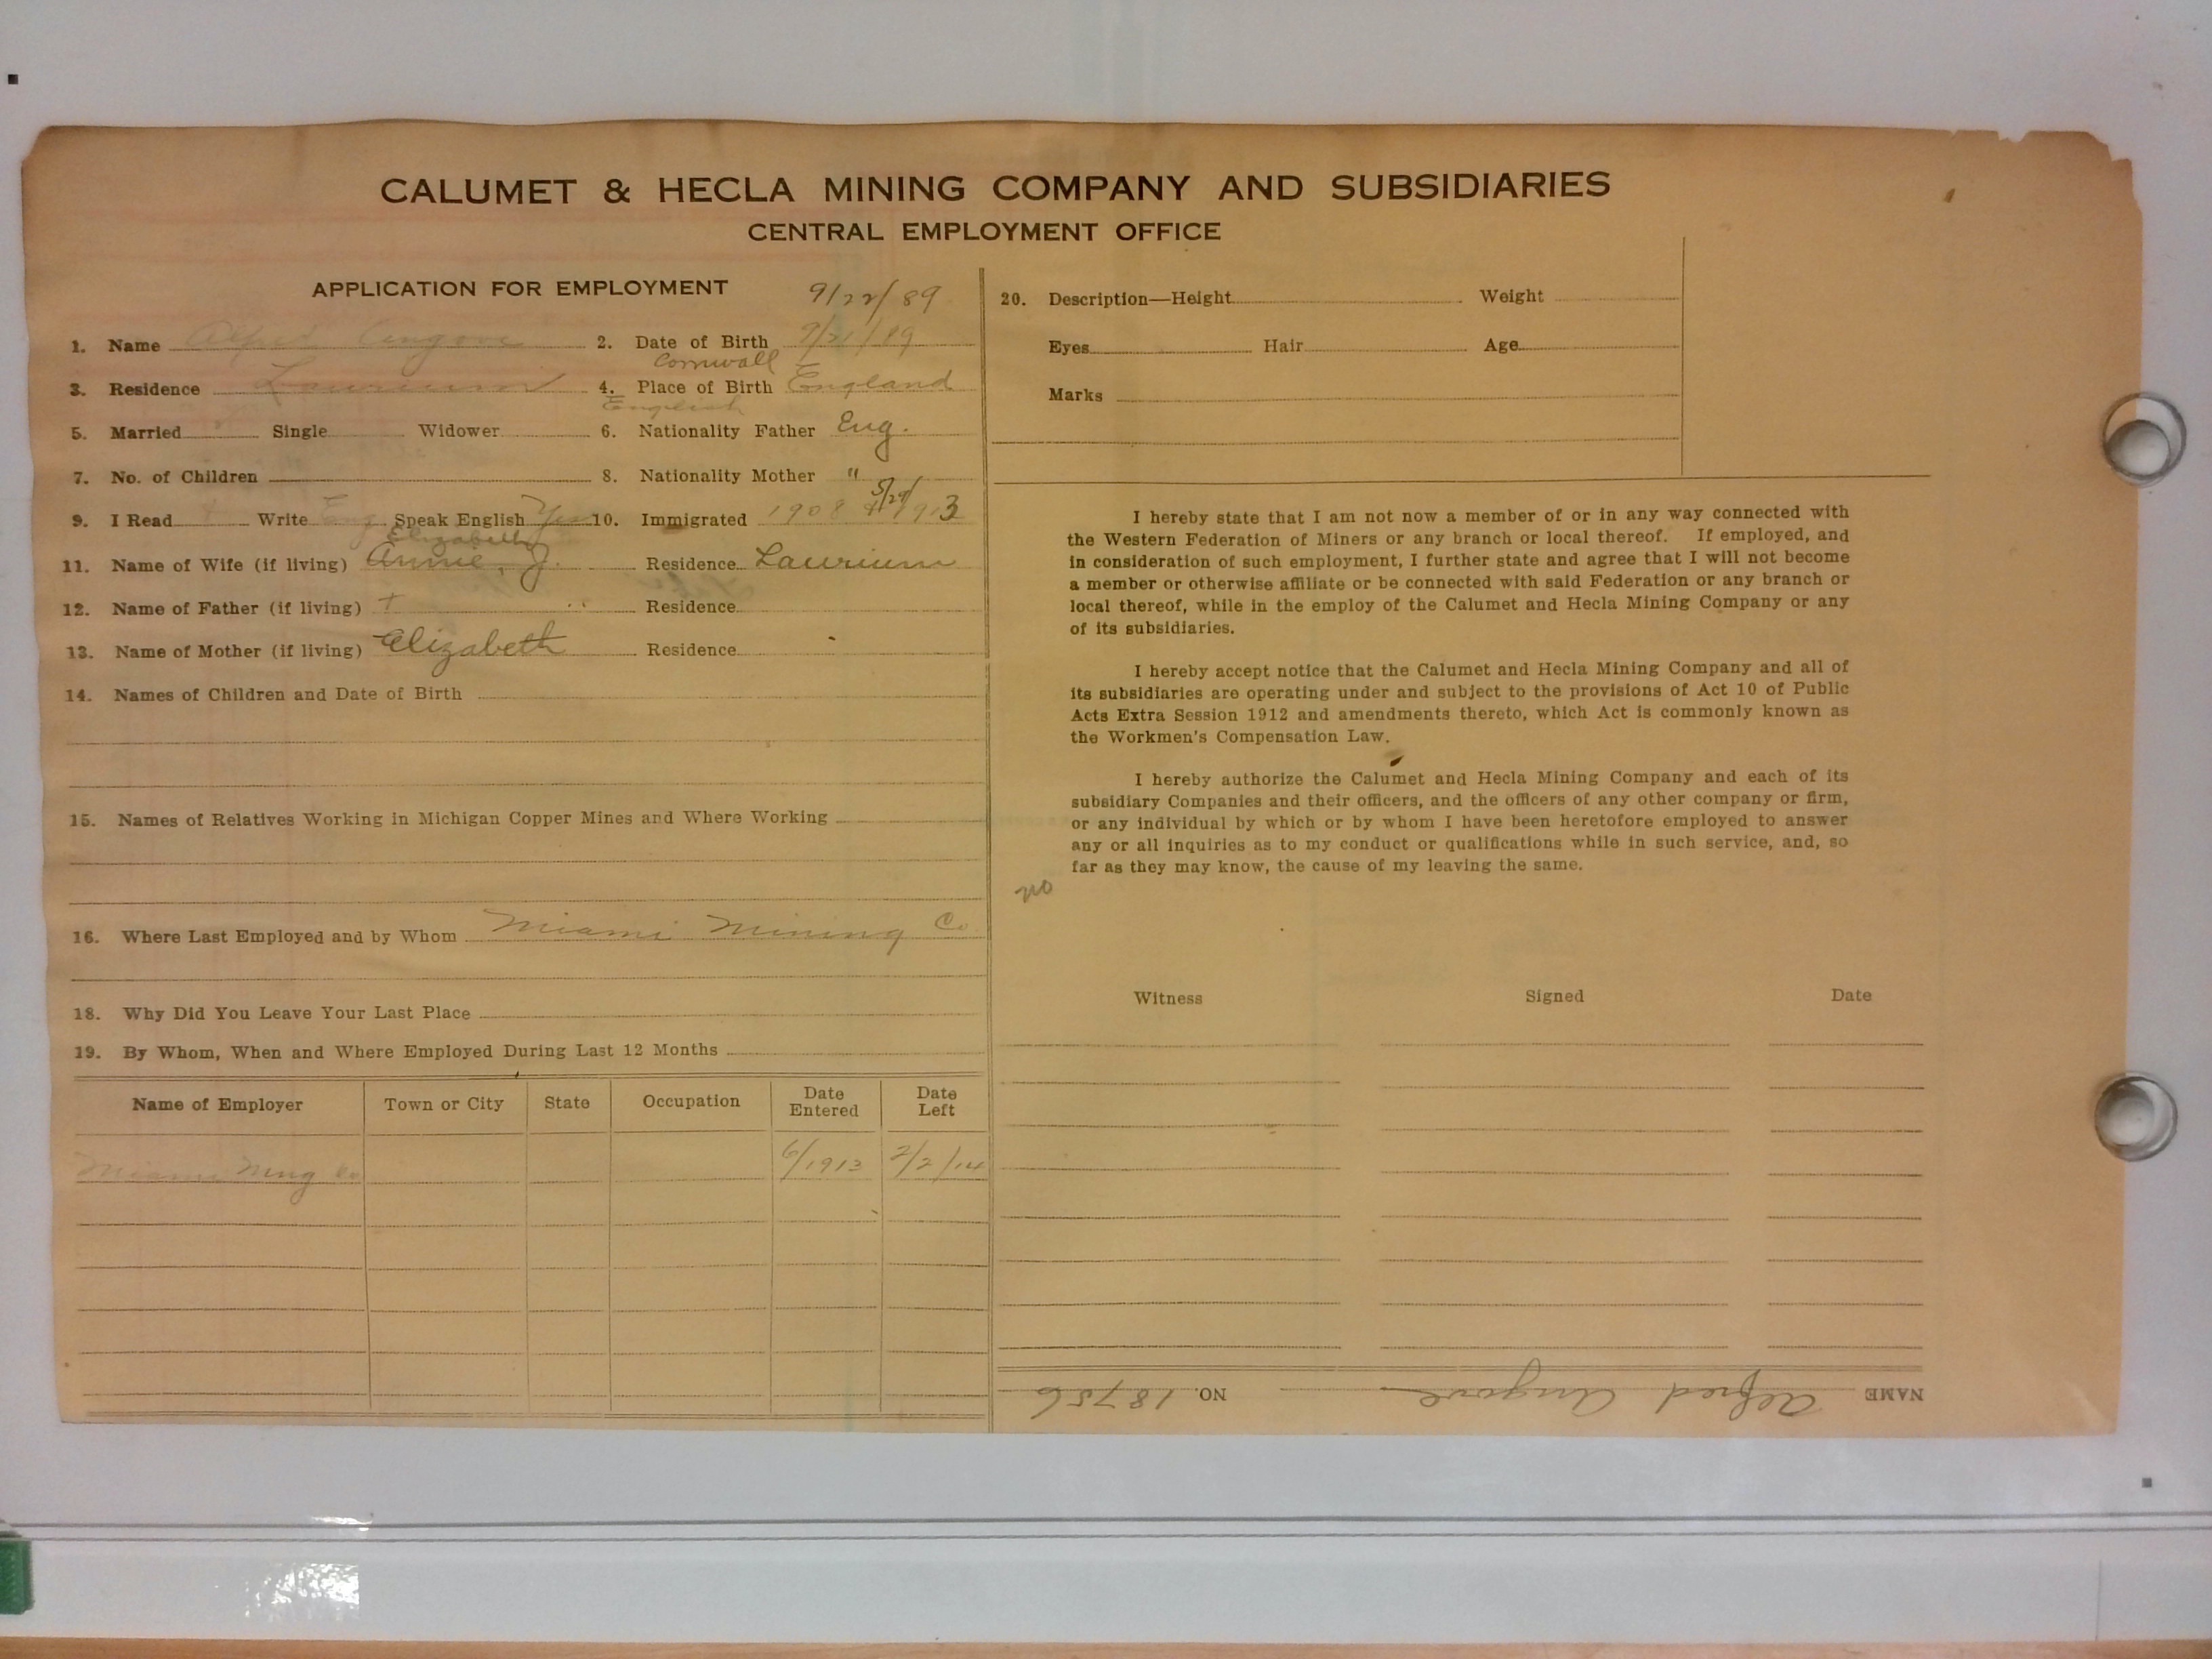 CALUMET & HECLA MINING COMPANY AND SUBSIDIARIES
CENTRAL EMPLOYMENT OFFICE
APPLICATION FOR EMPLOYMENT
9/22/89
1. Name Alfred Angove 2. Date of Birth 9/21/89
Cornwall
3. Residence Laurium 4. Place of Birth England
English
5. Married Single Widower 6. Nationality Father Eng.
7. No. of Children 8. Nationality Mother "
9. I Read Write Eng Speak English Yes 10. Immigrated 1908 1913
Elizabeth
11. Name of Wife (if living) Annie, J. Residence Laurium
12. Name of Father (if living) + Residence
13. Name of Mother (if living) Elizabeth Residence
14. Names of Children and Date of Birth
15. Names of Relatives Working in Michigan Copper Mines and Where Working
16. Where Last Employed and by Whom Miami Mining Co
18. Why Did You Leave Your Last Place
19. By Whom, When and Where Employed During Last 12 Months
Name of Employer Town or City State Occupation Date Entered Date Left
Miami Mng Co 6/1913 2/2/14
20. Description—Height Weight
Eyes Hair Age
Marks
I hereby state that I am not now a member of or in any way connected with
the Western Federation of Miners or any branch or local thereof. If employed, and
in consideration of such employment, I further state and agree that I will not become
a member or otherwise affiliate or be connected with said Federation or any branch or
local thereof, while in the employ of the Calumet and Hecla Mining Company or any
of its subsidiaries.
I hereby accept notice that the Calumet and Hecla Mining Company and all of
its subsidiaries are operating under and subject to the provisions of Act 10 of Public
Acts Extra Session 1912 and amendments thereto, which Act is commonly known as
the Workmen's Compensation Law.
I hereby authorize the Calumet and Hecla Mining Company and each of its
subsidiary Companies and their officers, and the officers of any other company or firm,
or any individual by which or by whom I have been heretofore employed to answer
any or all inquiries as to my conduct or qualifications while in such service, and, so
far as they may know, the cause of my leaving the same.
no
Witness Signed Date
NAME Alfred Angove NO. 18756